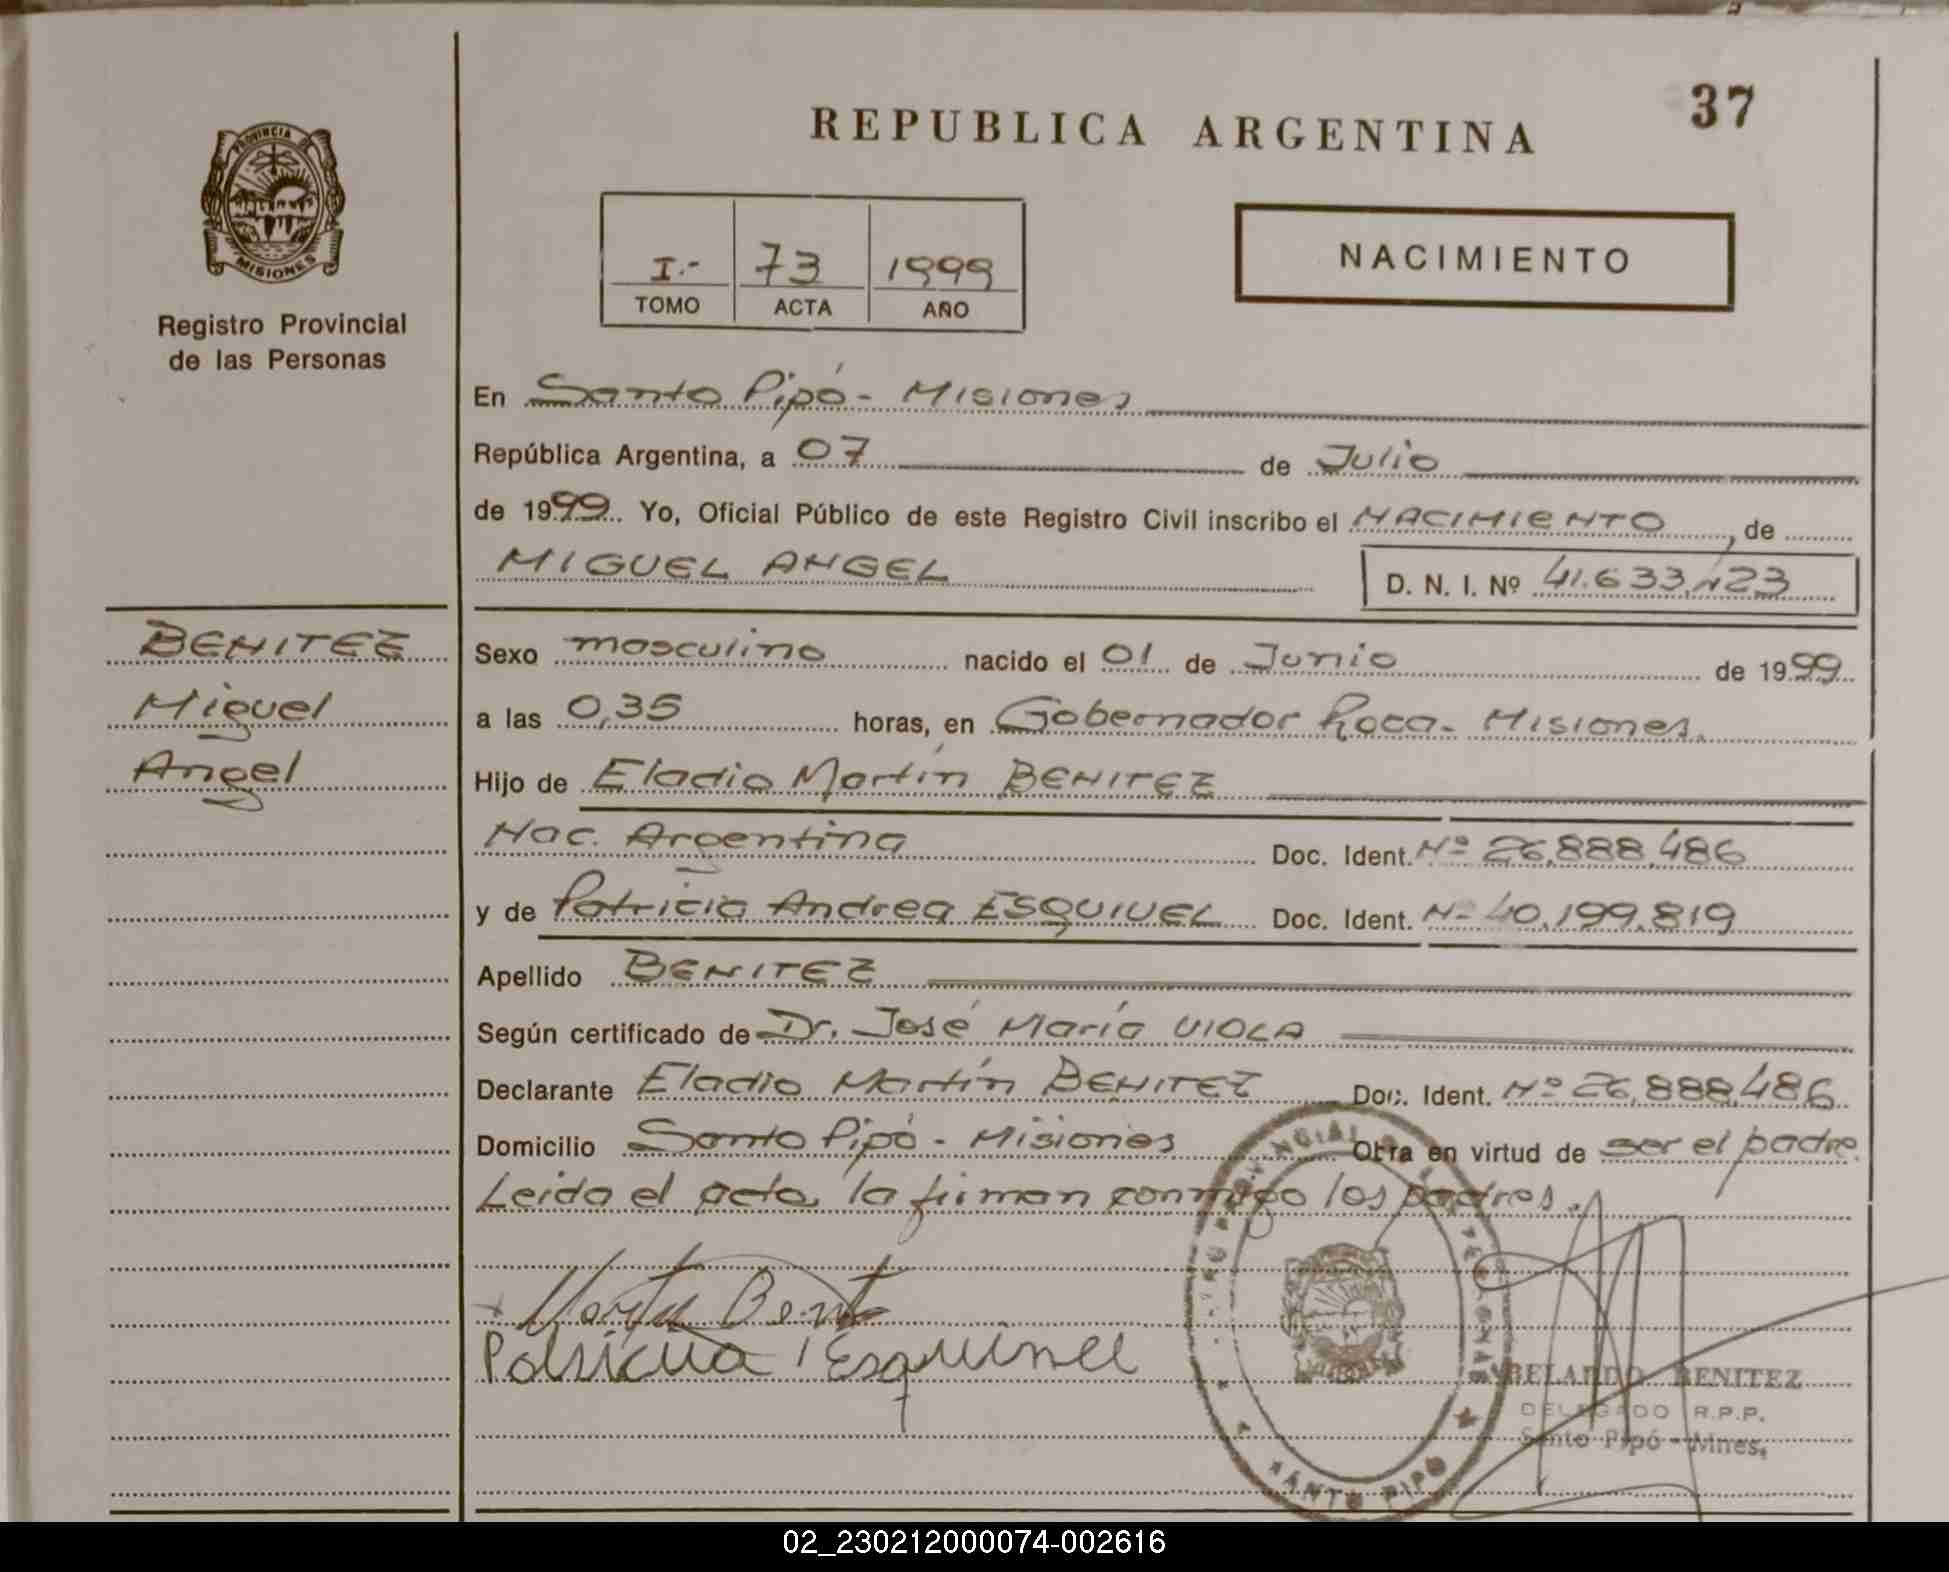 37
REPUBLICA ARGENTINA
PROVINCIA DE
MISIONES
Registro Provincial
de las Personas
I.- 73 1999
TOMO ACTA AÑO
NACIMIENTO
En Santo Pipó - Misiones
República Argentina, a 07 de Julio
de 1999 Yo, Oficial Público de este Registro Civil inscribo el NACIMIENTO, de
MIGUEL ANGEL D. N. I. Nº 41.633.123
BENITEZ
Miguel
Angel
Sexo masculino nacido el 01 de Junio de 1999
a las 0,35 horas, en Gobernador Roca - Misiones.
Hijo de Eladio Martín BENITEZ
Nac. Argentina Doc. Ident. Nº 26.888.486
y de Patricia Andrea ESQUIVEL Doc. Ident. Nº 40.199.819
Apellido BENITEZ
Según certificado de Dr. José María VIOLA
Declarante Eladio Martín BENITEZ Doc. Ident. Nº 26.888.486
Domicilio Santo Pipó - Misiones Obra en virtud de ser el padre
Leida el acta, la firman conmigo los padres.
Patricia Esquivel
ABELARDO BENITEZ
DELEGADO R.P.P.
Santo Pipó - Mnes.
SANTO PIPO
02_230212000074-002616